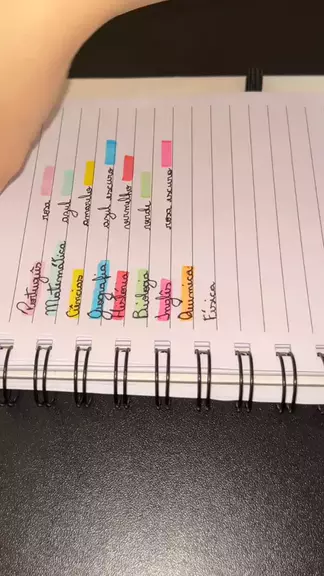 Português rosa
Matemática azul
Ciências amarelo
Geografia azul escuro
História vermelho
Biologia verde
Inglês rosa escuro
Química
Física